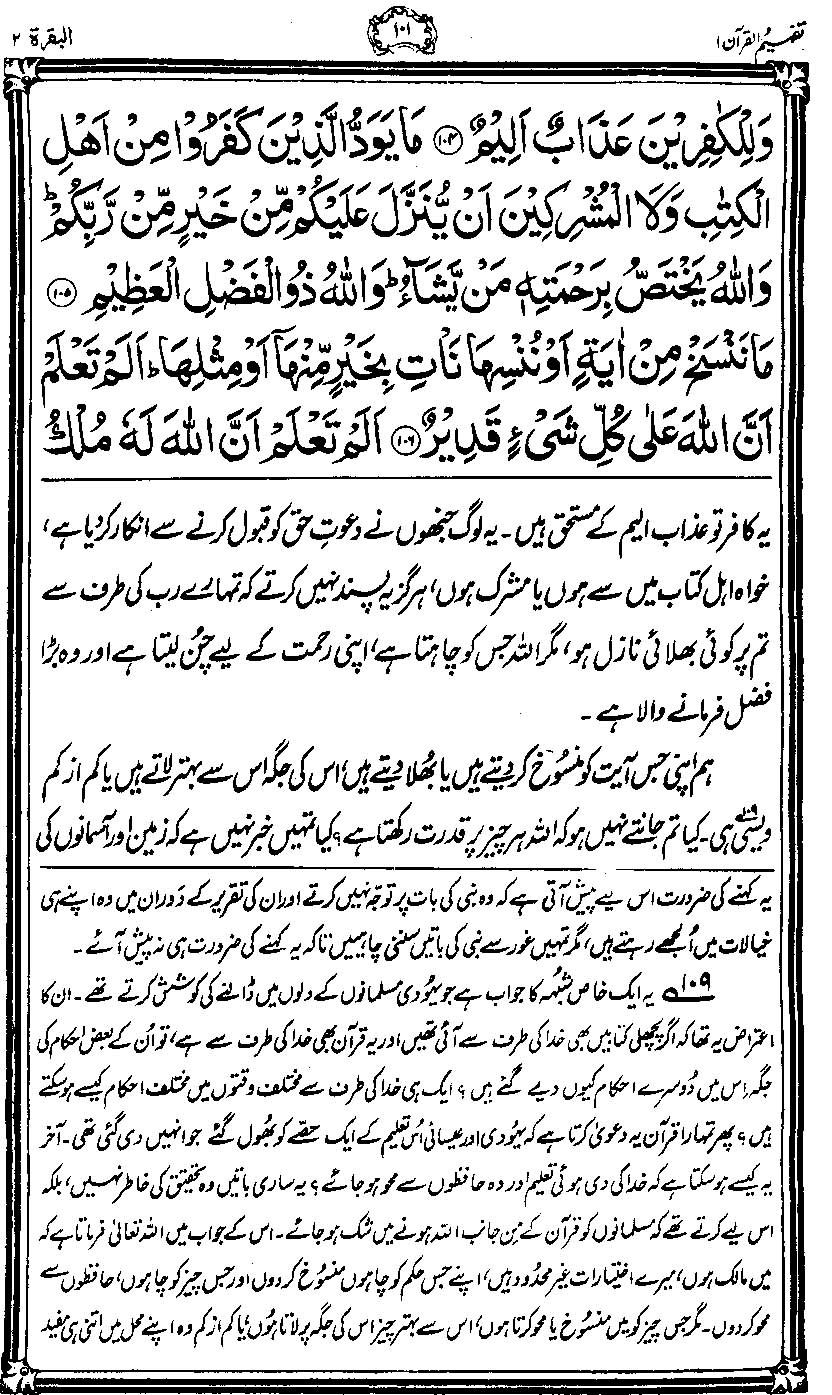 تفہیم القرآن ۱
۱۰۱
البقرۃ ۲
وَلِلْكٰفِرِيْنَ عَذَابٌ اَلِيْمٌ ﴿۱۰۴﴾ مَا يَوَدُّ الَّذِيْنَ كَفَرُوْا مِنْ اَهْلِ
الْكِتٰبِ وَلَا الْمُشْرِكِيْنَ اَنْ يُّنَزَّلَ عَلَيْكُمْ مِّنْ خَيْرٍ مِّنْ رَّبِّكُمْ ؕ
وَاللّٰهُ يَخْتَصُّ بِرَحْمَتِهٖ مَنْ يَّشَآءُ ؕ وَاللّٰهُ ذُو الْفَضْلِ الْعَظِيْمِ ﴿۱۰۵﴾
مَا نَنْسَخْ مِنْ اٰيَةٍ اَوْ نُنْسِهَا نَاْتِ بِخَيْرٍ مِّنْهَآ اَوْ مِثْلِهَا ؕ اَلَمْ تَعْلَمْ
اَنَّ اللّٰهَ عَلٰى كُلِّ شَيْءٍ قَدِيْرٌ ﴿۱۰۶﴾ اَلَمْ تَعْلَمْ اَنَّ اللّٰهَ لَهٗ مُلْكُ
یہ کافر تو عذاب الیم کے مستحق ہیں۔ یہ لوگ جنھوں نے دعوتِ حق کو قبول کرنے سے انکار کردیا ہے،
خواہ اہل کتاب میں سے ہوں یا مشرک ہوں، ہرگز یہ پسند نہیں کرتے کہ تمہارے رب کی طرف سے
تم پر کوئی بھلائی نازل ہو، مگر اللہ جس کو چاہتا ہے، اپنی رحمت کے لیے چُن لیتا ہے اور وہ بڑا
فضل فرمانے والا ہے۔
ہم اپنی جس آیت کو منسُوخ کر دیتے ہیں یا بُھلا دیتے ہیں، اس کی جگہ اس سے بہتر لاتے ہیں یا کم از کم
ویسی ہی۱۰۹۔ کیا تم جانتے نہیں ہو کہ اللہ ہر چیز پر قدرت رکھتا ہے؟ کیا تمہیں خبر نہیں ہے کہ زمین اور آسمانوں کی
یہ کہنے کی ضرورت اس لیے پیش آتی ہے کہ وہ نبی کی بات پر توجّہ نہیں کرتے اور ان کی تقریر کے دَوران میں وہ اپنے ہی
خیالات میں اُلجھے رہتے ہیں، مگر تمہیں غور سے نبی کی باتیں سننی چاہییں تاکہ یہ کہنے کی ضرورت ہی نہ پیش آئے۔
۱۰۹ یہ ایک خاص شبُہہ کا جواب ہے جو یہُودی مسلمانوں کے دلوں میں ڈالنے کی کوشش کرتے تھے۔ ان کا
اعتراض یہ تھا کہ اگر پچھلی کتابیں بھی خدا کی طرف سے آئی تھیں اور یہ قرآن بھی خدا کی طرف سے ہے، تو اُن کے بعض احکام کی
جگہ اس میں دُوسرے احکام کیوں دیے گئے ہیں؟ ایک ہی خدا کی طرف سے مختلف وقتوں میں مختلف احکام کیسے ہو سکتے
ہیں؟ پھر تمہارا قرآن یہ دعویٰ کرتا ہے کہ یہُودی اور عیسائی اُس تعلیم کے ایک حصّے کو بھُول گئے جو انہیں دی گئی تھی۔ آخر
یہ کیسے ہو سکتا ہے کہ خدا کی دی ہوئی تعلیم اور وہ حافظوں سے محو ہو جائے؟ یہ ساری باتیں وہ تحقیق کی خاطر نہیں، بلکہ
اس لیے کرتے تھے کہ مسلمانوں کو قرآن کے مِن جانب اللہ ہونے میں شک ہو جائے۔ اس کے جواب میں اللہ تعالیٰ فرماتا ہے کہ
میں مالک ہوں، میرے اختیارات غیر محدود ہیں، اپنے جس حکم کو چاہوں منسُوخ کردوں اور جس چیز کو چاہوں، حافظوں سے
محو کردوں۔ مگر جس چیز کو میں منسُوخ یا محو کرتا ہوں، اس سے بہتر چیز اس کی جگہ پر لاتا ہُوں، یا کم از کم وہ اپنے محل میں اتنی ہی مفید